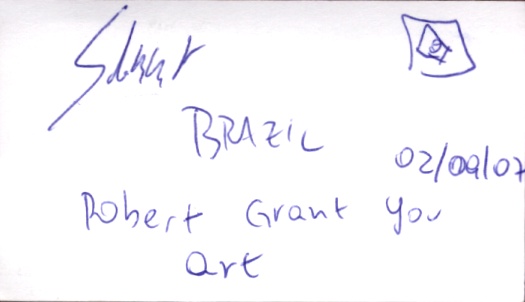 BRAZIL
02/09/07
Robert Grant you
art